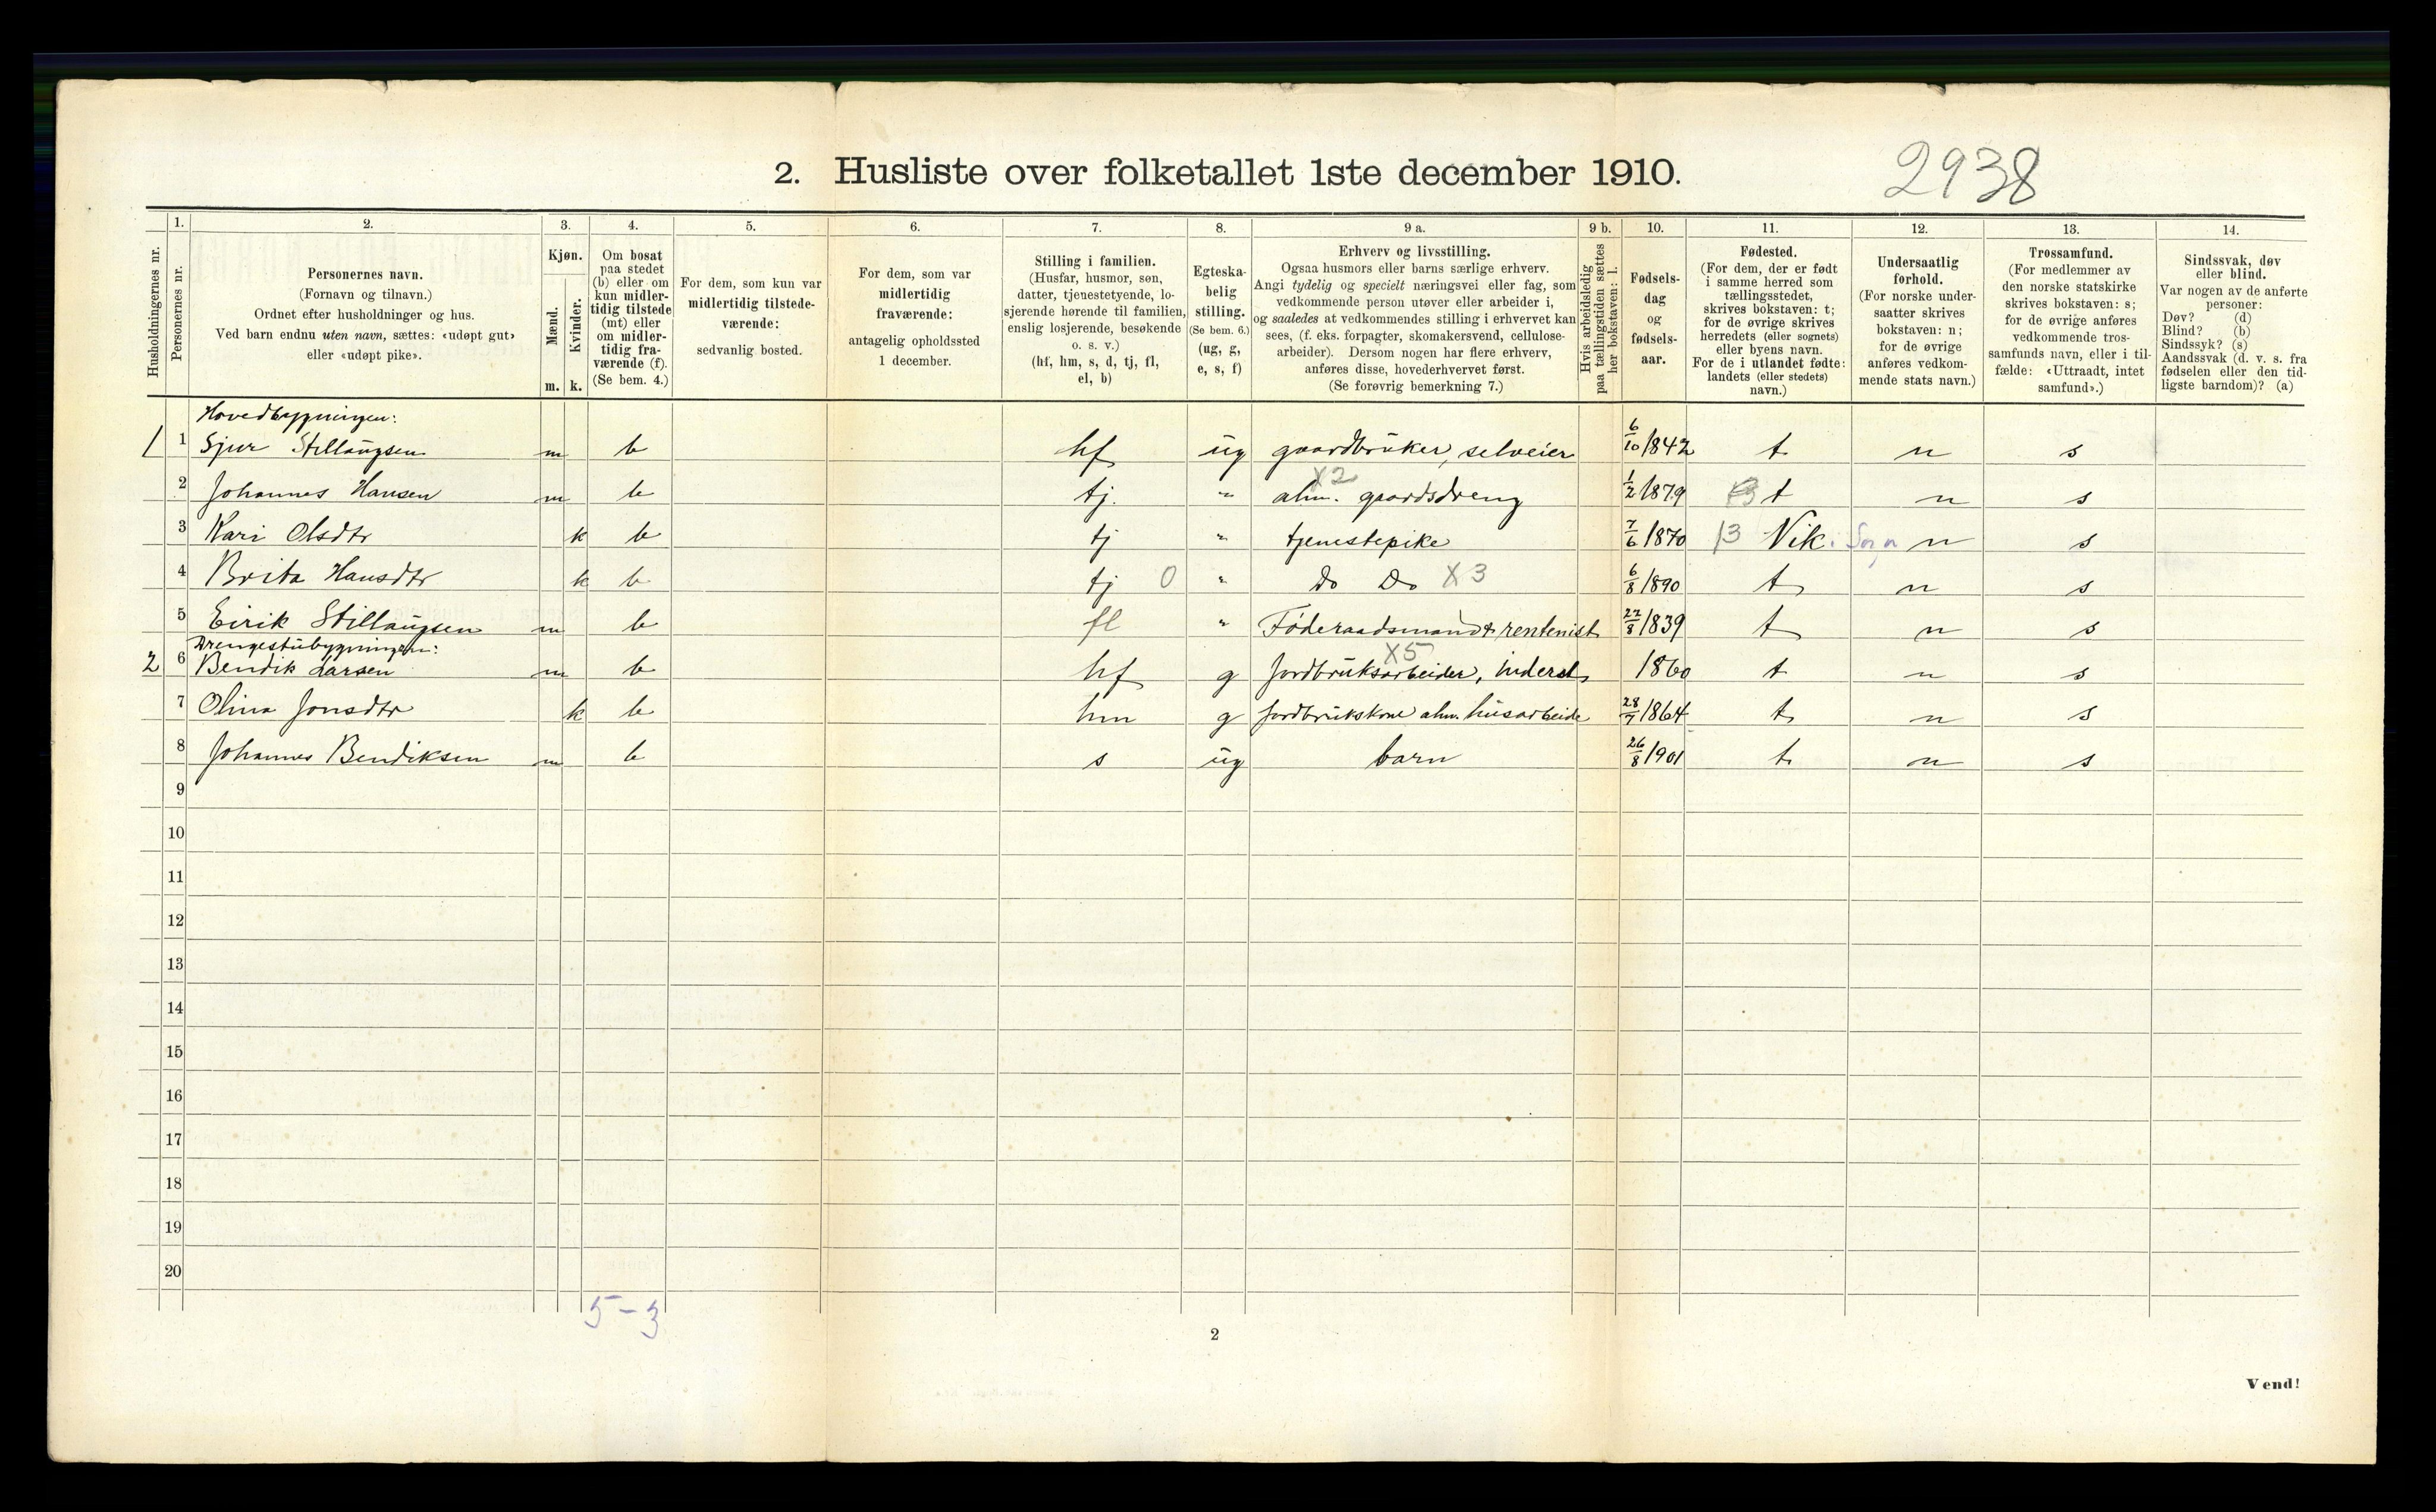 2. Husliste over folketallet 1ste december 1910.
2938
Husholdningernes nr.
1.
Personernes nr.
2.
Personernes navn.
(Fornavn og tilnavn.)
Ordnet efter husholdninger og hus.
Ved barn endnu uten navn, sættes: «udøpt gut»
eller «udøpt pike».
3.
Kjøn.
Mænd.
Kvinder.
m. k.
4.
Om bosat
paa stedet
(b) eller om
kun midler-
tidig tilstede
(mt) eller
om midler-
tidig fra-
værende (f).
(Se bem. 4.)
5.
For dem, som kun var
midlertidig tilstede-
værende:
sedvanlig bosted.
6.
For dem, som var
midlertidig
fraværende:
antagelig opholdssted
1 december.
7.
Stilling i familien.
(Husfar, husmor, søn,
datter, tjenestetyende, lo-
sjerende hørende til familien,
enslig losjerende, besøkende
o. s. v.)
(hf, hm, s, d, tj, fl,
el, b)
8.
Egteska-
belig
stilling.
(Se bem. 6.)
(ug, g,
e, s, f)
9 a.
Erhverv og livsstilling.
Ogsaa husmors eller barns særlige erhverv.
Angi tydelig og specielt næringsvei eller fag, som
vedkommende person utøver eller arbeider i,
og saaledes at vedkommendes stilling i erhvervet kan
sees, (f. eks. forpagter, skomakersvend, cellulose-
arbeider). Dersom nogen har flere erhverv,
anføres disse, hovederhvervet først.
(Se forøvrig bemerkning 7.)
9 b.
Hvis arbeidsledig
paa tællingstiden sættes
her bokstaven: l.
10.
Fødsels-
dag
og
fødsels-
aar.
11.
Fødested.
(For dem, der er født
i samme herred som
tællingsstedet,
skrives bokstaven: t;
for de øvrige skrives
herredets (eller sognets)
eller byens navn.
For de i utlandet fødte:
landets (eller stedets)
navn.)
12.
Undersaatlig
forhold.
(For norske under-
saatter skrives
bokstaven: n;
for de øvrige
anføres vedkom-
mende stats navn.)
13.
Trossamfund.
(For medlemmer av
den norske statskirke
skrives bokstaven: s;
for de øvrige anføres
vedkommende tros-
samfunds navn, eller i til-
fælde: «Uttraadt, intet
samfund».)
14.
Sindssvak, døv
eller blind.
Var nogen av de anførte
personer:
Døv? (d)
Blind? (b)
Sindssyk? (s)
Aandssvak (d. v. s. fra
fødselen eller den tid-
ligste barndom)? (a)
Hovedbygningen:
1 1 Sjur Stellaugsen m b hf ug gaardbruker, selveier 6/10 1842 t n s
X2
2 Johannes Hansen m b tj. " alm. gaardsdreng 1/2 1879 t n s
3 Kari Olsdtr k b tj " tjenestepike 7/6 1870 13 Vik i Sogn n s
4 Brita Hansdtr k b tj 0 " Do Do X3 6/8 1890 t n s
5 Eirik Stillaugsen m b fl " Føderaadsmand & rentenist 27/8 1839 t n s
Drengestubygningen:
X5
2 6 Bendik Larsen m b hf g Jordbruksarbeider, inderst 1860 t n s
7 Olina Jonsdtr k b hm g Jordbrukskone alm. husarbeide 28/7 1864 t n s
8 Johannes Bendiksen m b s ug barn 26/8 1901 t n s
9
10
11
12
13
14
15
16
17
18
19
20
5-3
2
Vend!